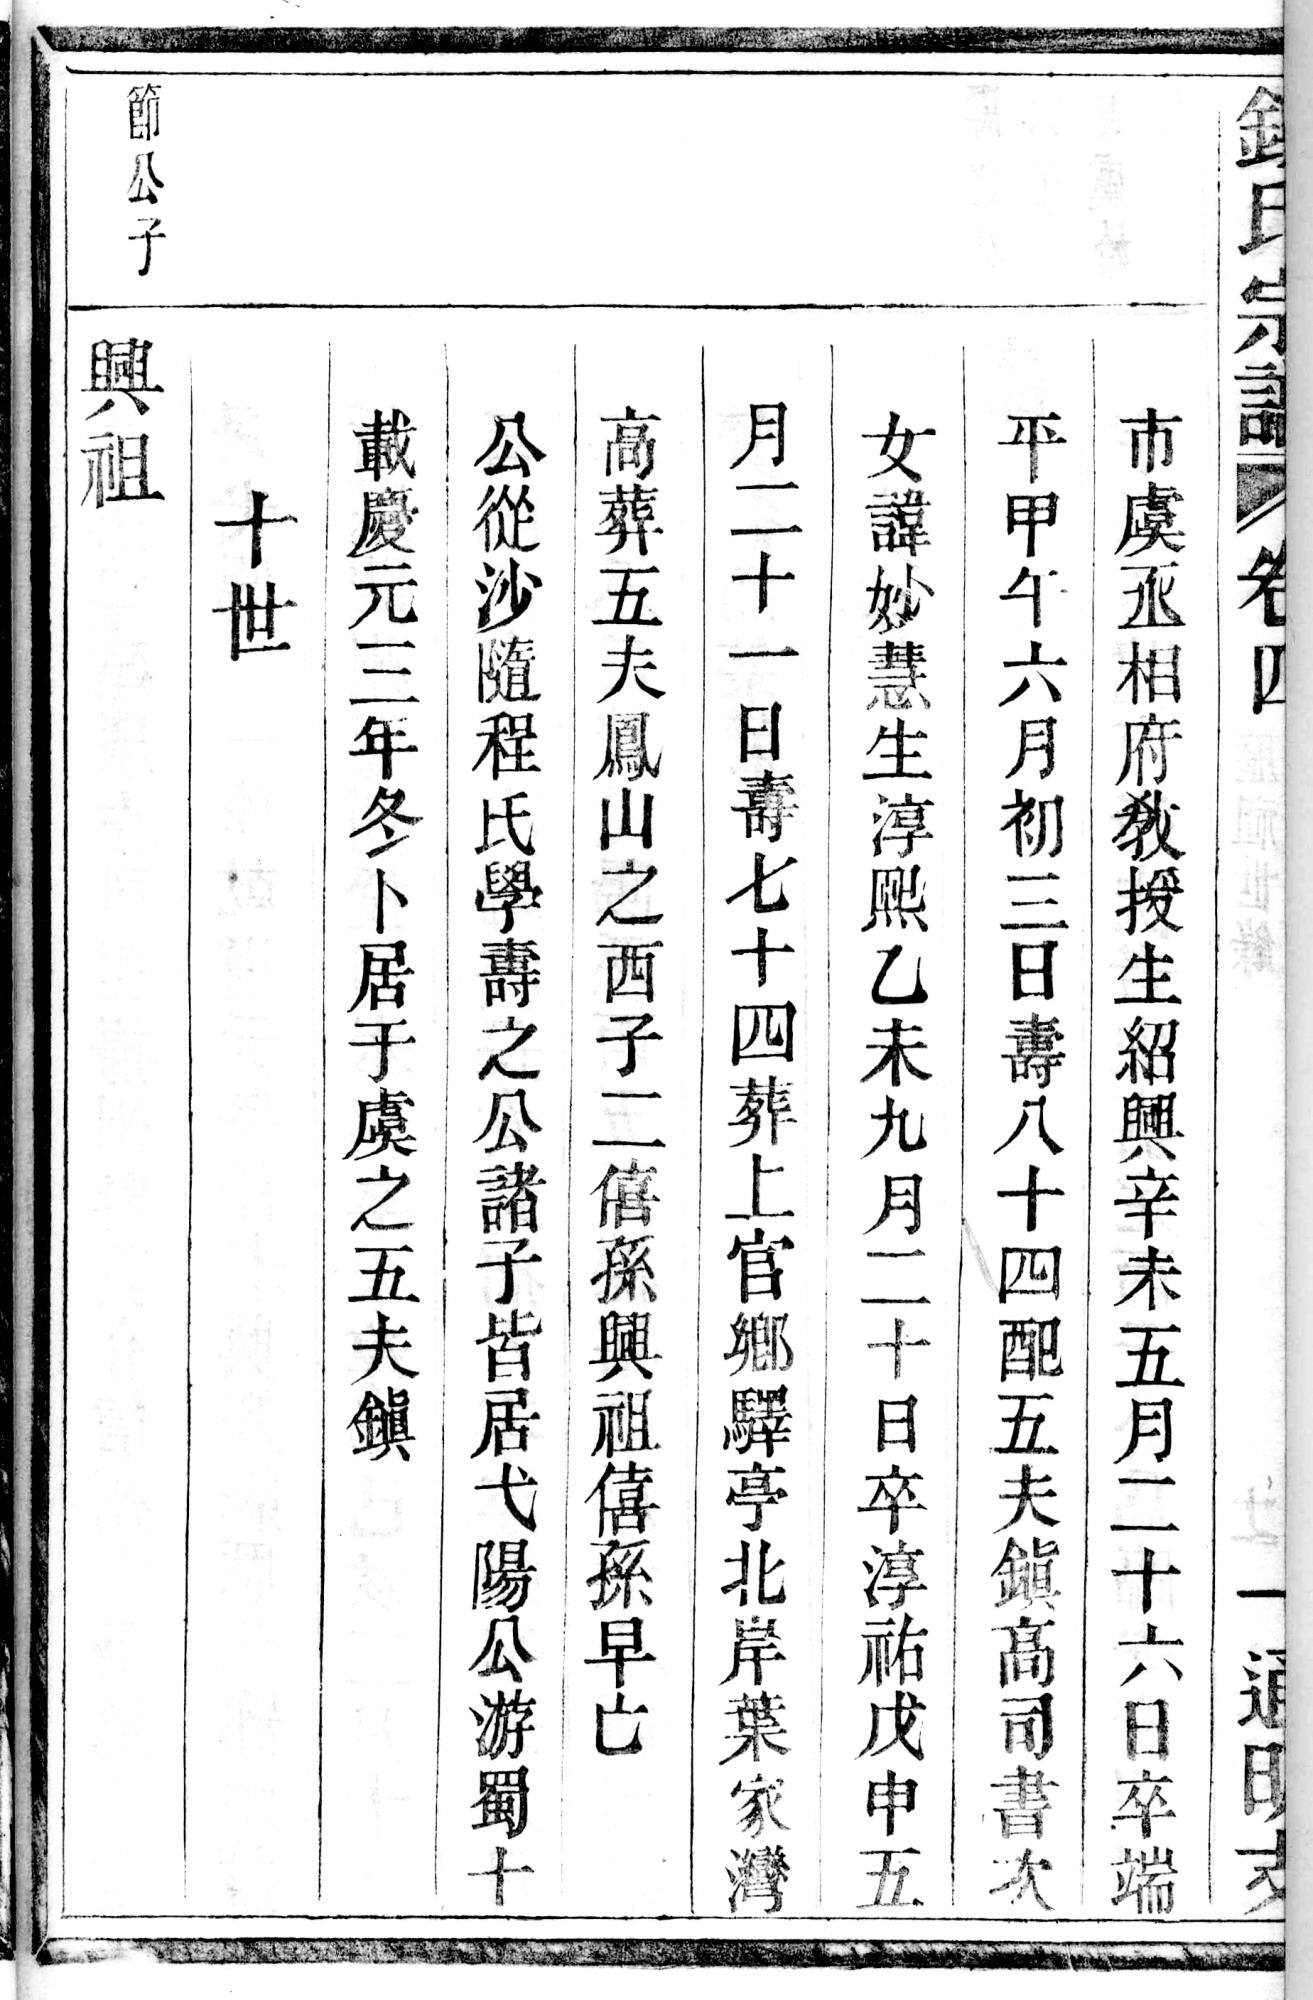 氏宗譜 卷四 一 通明
市虞丞相府教授生紹興辛未五月二十六日卒端
平甲午六月初三日壽八十四配五夫鎭高司書次
女諱妙慧生淳熙乙未九月二十日卒淳祐戊申五
月二十一日壽七十四葬上官鄉驛亭北岸葉家灣
高葬五夫鳳山之西子二僖孫興祖僖孫早亡
公從沙隨程氏學壽之公諸子皆居弋陽公游蜀十
載慶元三年冬卜居于虞之五夫鎭
十世
節公子
興祖